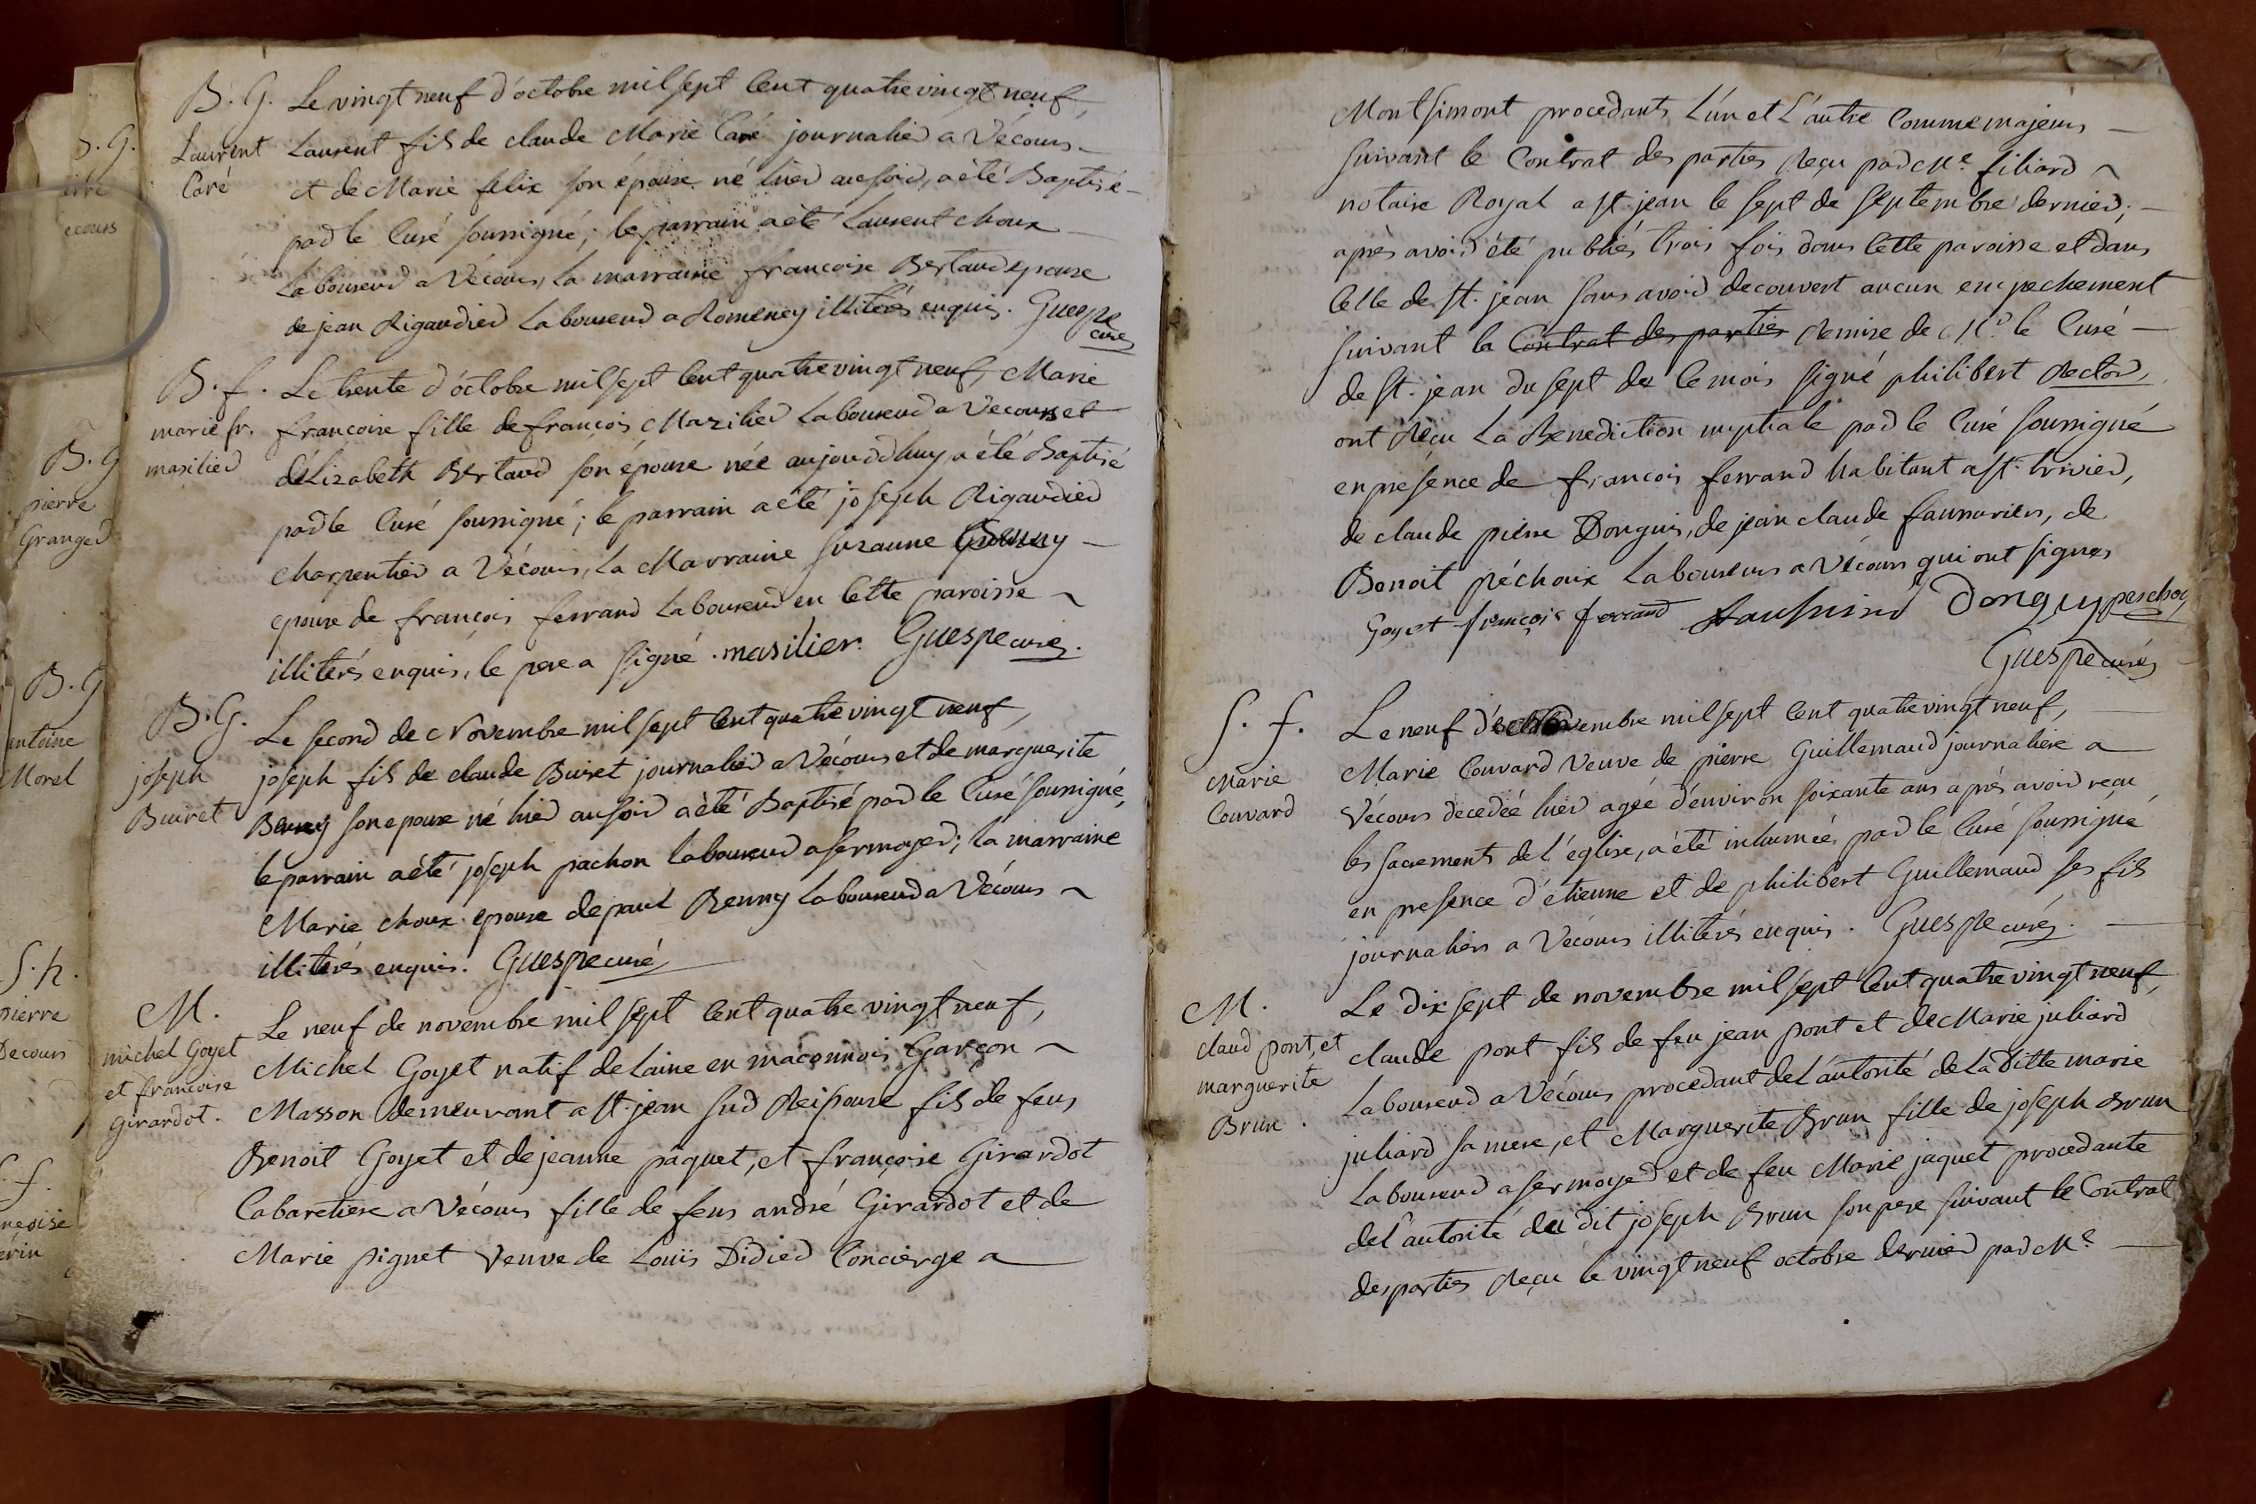 B. G.
Laurent
Caré
Le vingt neuf d'octobre mil sept cent quatre vingt neuf,
Laurent fils de claude Marie Caré journalier a Vécours
et de Marie felix son épouse né hier au soir, a été Baptisé
par le Curé soussigné; le parrain a été Laurent choux
Laboureur a Vécours, la marraine francoise Bertaud epouse
de jean Rigaudier Laboureur a Romeney illiterés enquis. Guespe
curé
B. f.
marie fr.
masilier
Le trente d'octobre mil sept cent quatre vingt neuf, Marie
francoise fille de francois Mazilier Laboureur a Vecours et
d'Elizabeth Bertaud son épouse née aujourdhuy a été Baptisé
par le Curé soussigné; le parrain a été joseph Rigaudier
charpentier a Vécours, la Marraine suzanne
epouse de françois ferrand Laboureur en cette paroisse
illiterés enquis, le pere a signé. masilier. Guespe curé.
B. G.
joseph
Buiret
Le second de Novembre mil sept cent quatre vingt neuf,
joseph fils de claude Buiret journalier a Vécours et de marguerite
Benny son epouse né hier au soir a été Baptisé par le Curé soussigné,
le parrain a été joseph pachon laboureur a sermoyer; la marraine
Marie choux epouse de paul Benny laboureur a Vécours
illiterés enquis. Guespe curé
M.
michel Goyet
et francoise
Girardot.
Le neuf de novembre mil sept cent quatre vingt neuf,
Michel Goyet natif de Laine en maconnois Garçon
Masson demeurant a st. jean sur Reissouze fils de feus
Benoit Goyet et de jeanne paquet, et françoise Girardot
Cabaretiere a Vécours fille de feus andré Girardot et de
Marie piguet Veuve de Louis Didier Concierge a
Montsimont procedants L'un et L'autre Comme majeurs
suivant le Contrat des parties Reçu par Me. filiard
notaire Royal a st. jean le sept de septembre dernier;
après avoir été publiés trois fois dans cette paroisse et dans
celle de st. jean sans avoir decouvert aucun empechement
suivant la Contrat des parties Remise de Mr. le Curé
de st. jean du sept de ce mois signé philibert Rector,
ont Reçu La Benediction nuptiale par le Curé soussigné
en présence de francois ferrand habitant a st. trivier,
de claude pierre Donguis, de jean claude faussuriers, de
Benoit péchoix Laboureurs a Vécours qui ont signés
Goyet françois ferrand Donguy peschoy
Guespe curé
S. f.
Marie
Couvard
Le neuf de novembre mil sept cent quatre vingt neuf,
Marie Couvard Veuve de pierre Guillemaud journaliere a
Vécours decedée hier agée d'environ soixante ans après avoir reçu
les sacements de l'église, a été inhumée par le Curé soussigné
en presence d'étienne et de philibert Guillemaud ses fils
journaliers a Vécours illiterés enquis. Guespe curé.
M.
claud pont, et
marguerite
Brun.
Le dix sept de novembre mil sept cent quatre vingt neuf,
claude pont fils de feu jean pont et de Marie juliard
Laboureur a Vécours procedant de L'autorité de Laditte marie
juliard sa mere, et Marguerite Brun fille de joseph Brun
Laboureur a sermoyer et de feu Marie jaquet procedante
de l'autorité du dit joseph Brun son pere suivant le Contrat
des parties Reçu le vingt neuf octobre dernier par Me.